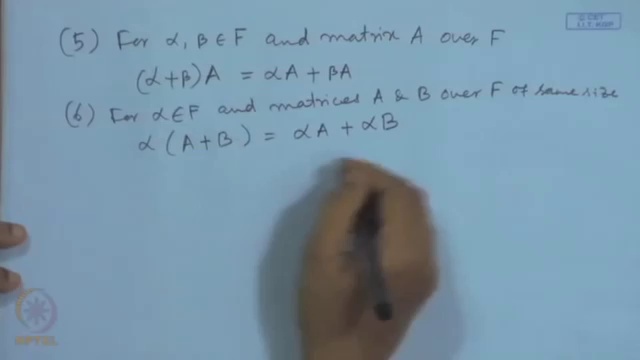 (5) For α, β ∈ F and matrix A over F
(α+β)A = αA + βA
(6) For α∈F and matrices A & B over F of same size
α (A+B) = αA + αB
© CET
I.I.T. KGP
NPTEL